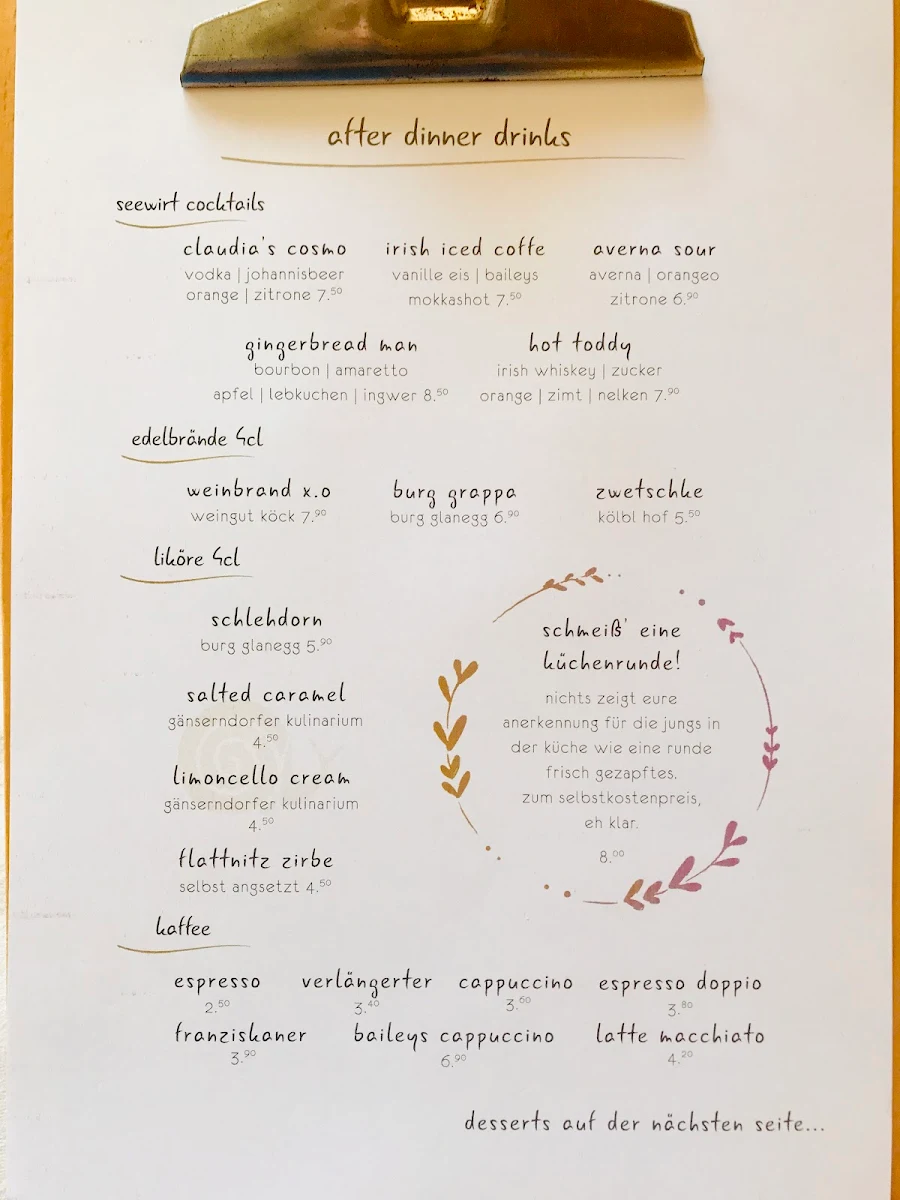 after dinner drinks
seewirt cocktails
claudia's cosmo
vodka | johannisbeer
orange | zitrone 7.50
irish iced coffe
vanille eis | baileys
mokkashot 7.50
averna sour
averna | orangeo
zitrone 6.90
gingerbread man
bourbon | amaretto
apfel | lebkuchen | ingwer 8.50
hot toddy
irish whiskey | zucker
orange | zimt | nelken 7.90
edelbrände 4cl
weinbrand x.o
weingut köck 7.90
burg grappa
burg glanegg 6.90
zwetschke
kölbl hof 5.50
liköre 4cl
schlehdorn
burg glanegg 5.90
salted caramel
gänserndorfer kulinarium
4.50
limoncello cream
gänserndorfer kulinarium
4.50
flattnitz zirbe
selbst angsetzt 4.50
schmeiß' eine
küchenrunde!
nichts zeigt eure
anerkennung für die jungs in
der küche wie eine runde
frisch gezapftes.
zum selbstkostenpreis,
eh klar.
8.00
kaffee
espresso
2.50
verlängerter
3.40
cappuccino
3.60
espresso doppio
3.80
franziskaner
3.90
baileys cappuccino
6.90
latte macchiato
4.20
desserts auf der nächsten seite...